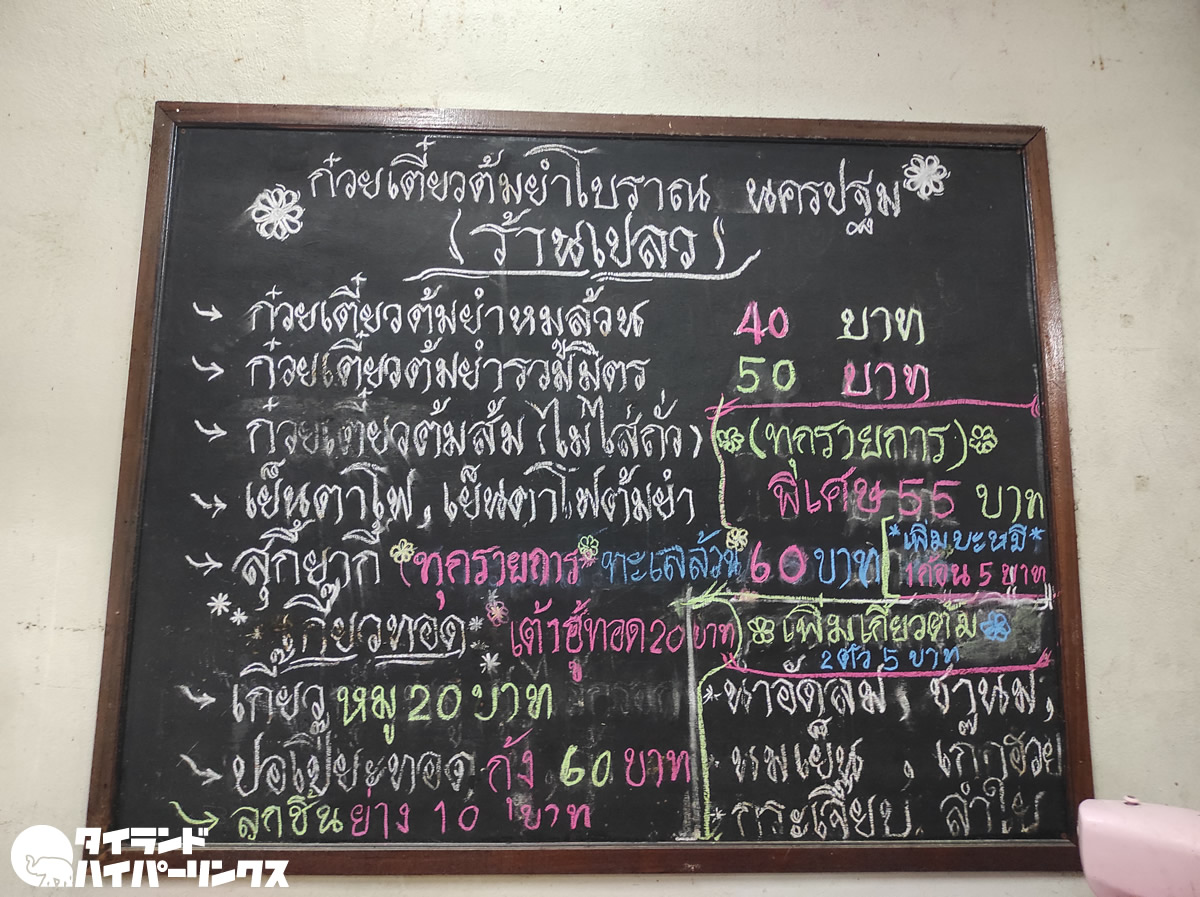 ก๋วยเตี๋ยวต้มยำโบราณ นครปฐม
(ร้านเปลว)
ก๋วยเตี๋ยวต้มยำหมูล้วน 40 บาท
ก๋วยเตี๋ยวต้มยำรวมมิตร 50 บาท
ก๋วยเตี๋ยวต้มส้ม (ไม่ใส่ถั่ว) (ทุกรายการ)
เย็นตาโฟ, เย็นตาโฟต้มยำ พิเศษ 55 บาท
สุกี้ยากี้ (ทุกรายการ* ทะเลล้วน 60 บาท
*เพิ่มบะหมี่*
1 ก้อน 5 บาท
เกี๊ยวทอด* เต้าฮู้ทอด 20 บาท)
เพิ่มเกี๊ยวต้ม
2 ตัว 5 บาท
เกี๊ยว หมู 20 บาท
ปอเปี๊ยะทอด กุ้ง 60 บาท
ลูกชิ้นย่าง 10 บาท
น้ำอัดลม, ชานม,
นมเย็น, เก๊กฮวย
กระเจี๊ยบ, ลำไย
タイランド
ハイパーリンクス